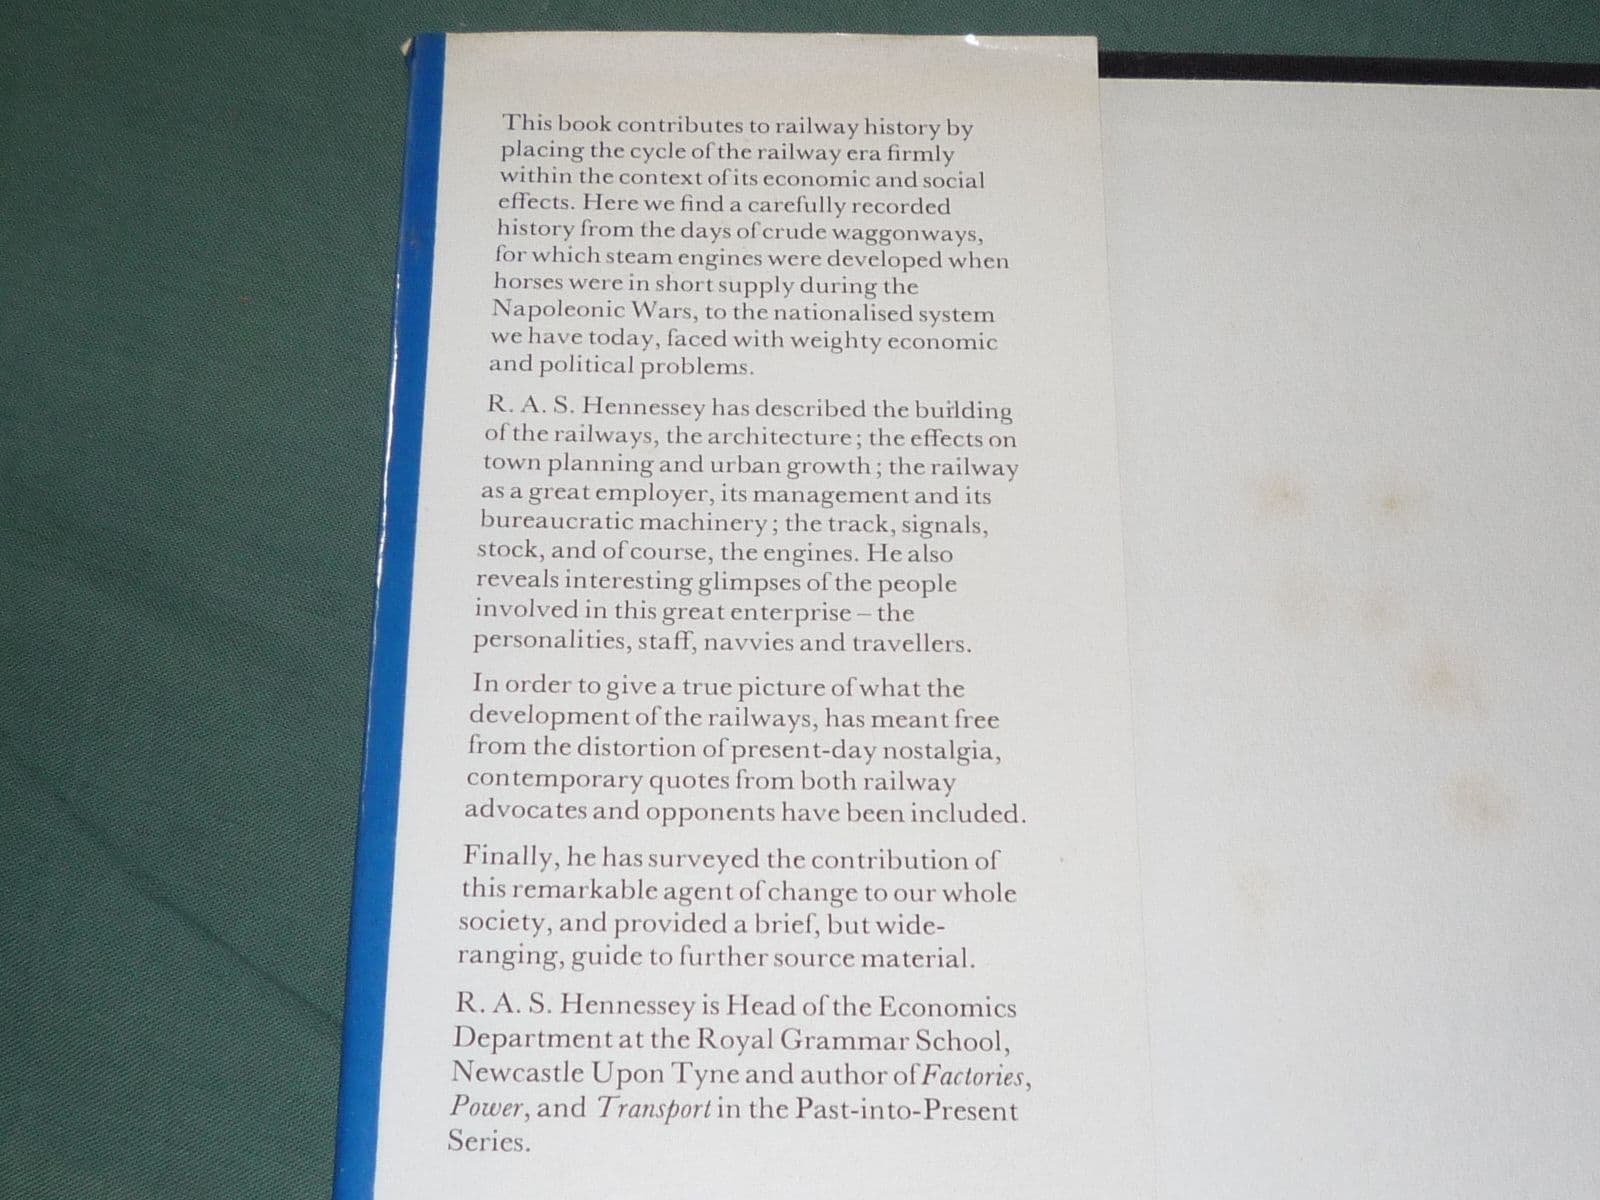 This book contributes to railway history by
placing the cycle of the railway era firmly
within the context of its economic and social
effects. Here we find a carefully recorded
history from the days of crude waggonways,
for which steam engines were developed when
horses were in short supply during the
Napoleonic Wars, to the nationalised system
we have today, faced with weighty economic
and political problems.
R. A. S. Hennessey has described the building
of the railways, the architecture; the effects on
town planning and urban growth; the railway
as a great employer, its management and its
bureaucratic machinery; the track, signals,
stock, and of course, the engines. He also
reveals interesting glimpses of the people
involved in this great enterprise – the
personalities, staff, navvies and travellers.
In order to give a true picture of what the
development of the railways, has meant free
from the distortion of present-day nostalgia,
contemporary quotes from both railway
advocates and opponents have been included.
Finally, he has surveyed the contribution of
this remarkable agent of change to our whole
society, and provided a brief, but wide-
ranging, guide to further source material.
R. A. S. Hennessey is Head of the Economics
Department at the Royal Grammar School,
Newcastle Upon Tyne and author of Factories,
Power, and Transport in the Past-into-Present
Series.